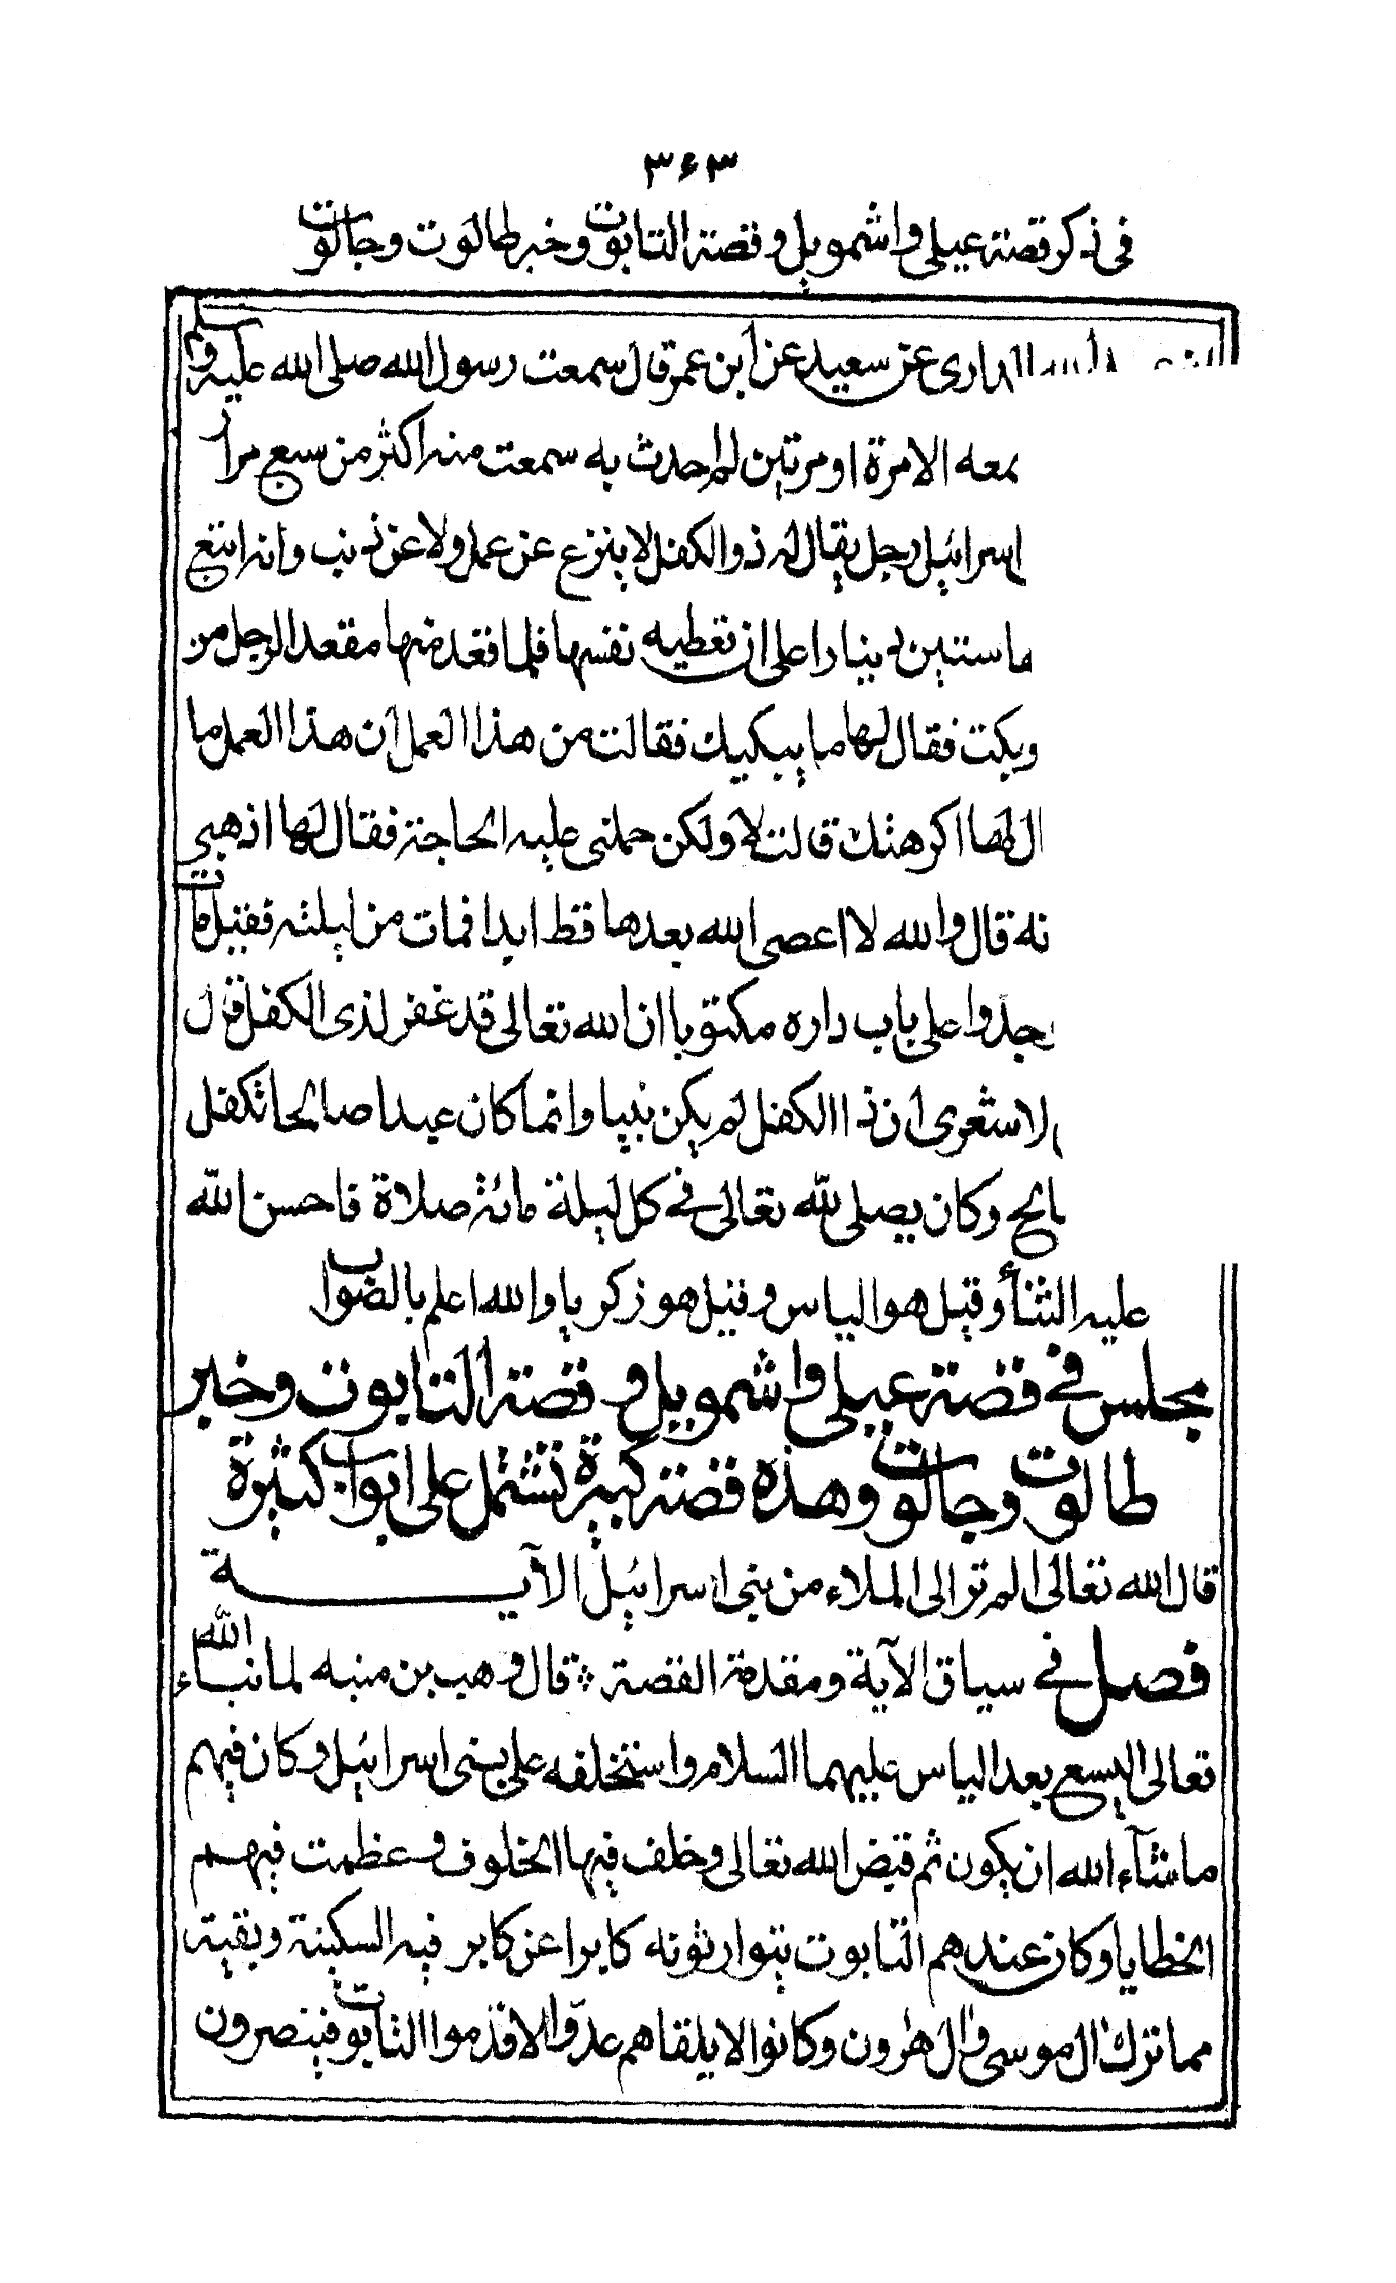 ٣٤٣
في ذكر قصة عيلى واشمويل وقصة التابوت وخبر طالوت وجالوت
عن سعيد عن ابن عمر قال سمعت رسول الله صلى الله عليه وسلم
معه الا مرة او مرتين لم احدث به سمعت منه اكثر من سبع مرار
اسرائيل رجل يقال له ذو الكفل لا ينزع عن عمل ولا عن ذنب وانه اتبع
ستين دينارا على ان تعطيه نفسها فلما قعد منها مقعد الرجل من
وبكت فقال لها ما يبكيك فقالت من هذا العمل ان هذا العمل ما
اكرهتك قالت لا ولكن حملني عليه الحاجة فقال لها اذهبي
قال والله لا اعصى الله بعدها قط ابدا فمات من ليلته فقيل مات
على باب داره مكتوبا ان الله تعالى قد غفر لذى الكفل
الاشعرى ان ذا الكفل لم يكن نبيا وانما كان عبدا صالحا تكفل
وكان يصلى لله تعالى في كل ليلة مائة صلاة فاحسن الله
عليه الثناء وقيل هو الياس وقيل هو زكريا والله اعلم بالصواب
مجلس في قصة عيلى واشمويل وقصة التابوت وخبر
طالوت وجالوت وهذه قصة كبيرة تشتمل على ابواب كثيرة
قال الله تعالى الم تر الى الملاء من بنى اسرائيل الآية
فصل في سياق الآية ومقدمة القصة ؞ قال وهب بن منبه لما نباء الله
تعالى اليسع بعد الياس عليهما السلام واستخلفه على بنى اسرائيل وكان فيهم
ما شآء الله ان يكون ثم قبض الله تعالى وخلف فيها الخلوف وعظمت فيهم
الخطايا وكان عندهم التابوت يتوارثونه كابرا عن كابر فيه السكينة وبقية
مما ترك ال موسى وال هرون وكانوا لا يلقاهم عدو الا قدموا التابوت فينصرون